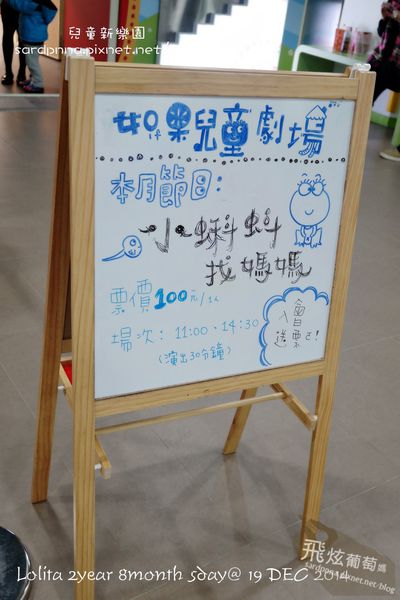 兒童新樂園
sardonna.pixnet.net
如果兒童劇場
if
本月節目：
小蝌蚪
找媽媽
票價100元/1人
場次：11:00、14:30
(演出30分鐘)
入會
送票!
飛炫葡萄媽
Lolita 2year 8month 5day@ 19 DEC 2014